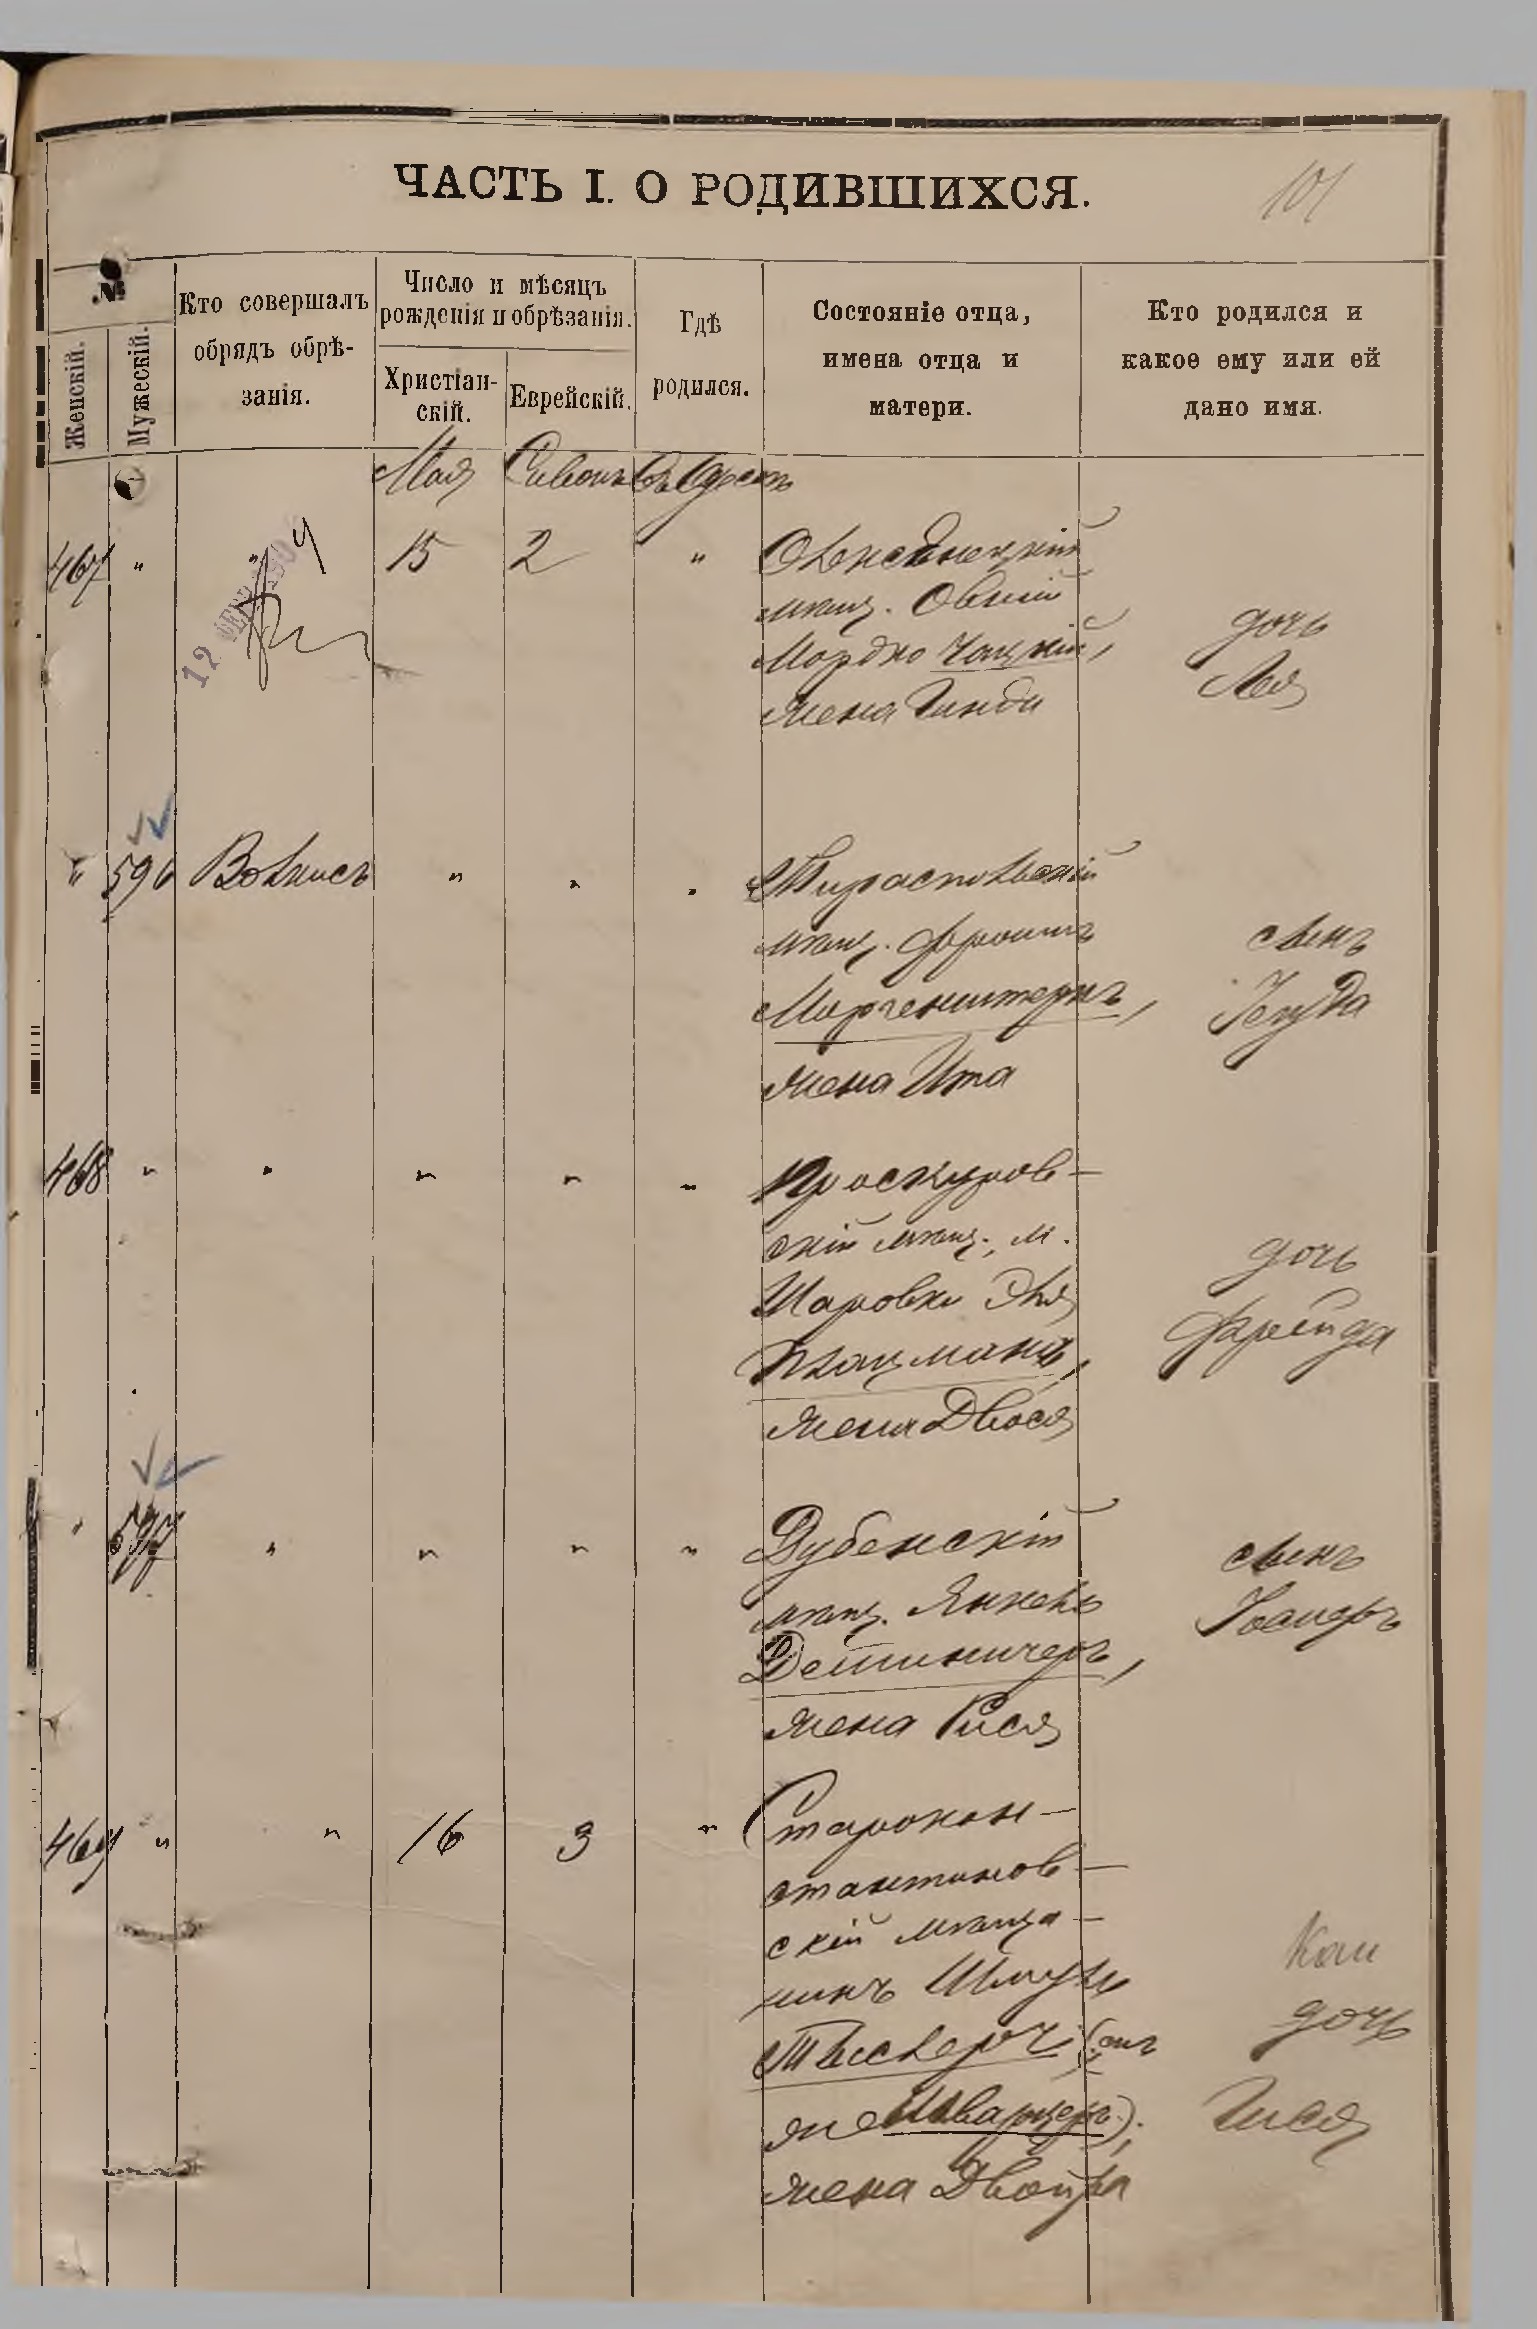 ЧАСТЬ I. О РОДИВШИХСЯ.
101
№
Женскій.
Мужескій.
Кто совершалъ
обрядъ обрѣ-
занія.
Число и мѣсяцъ
рожденія и обрѣзанія.
Христіан-
скій.
Еврейскій.
Гдѣ
родился.
Состояніе отца,
имена отца и
матери.
Кто родился и
какое ему или ей
дано имя.
Мая Сивонъ Въ Одессѣ
467 " 15 2 "
мѣщ. Овшій
Мордко Чацкій,
жена Гинди
дочь
Лея
12
" 596 Вольнисъ " " " Тираспольскій
мѣщ. Фроимъ
Моргенштернъ,
жена Ита
сынъ
Іегуда
468 " " " " " Проскуров-
скій мѣщ., м.
Шаровки Эля
Кацманъ,
жена Двося
дочь
Фрейда
" 597 " " " " Дубенскій
мѣщ. Янкель
Детиничеръ,
жена Рися
сынъ
Іосиферъ
469 " " 16 3 " Старокон-
стантинов-
скій мѣща-
нинъ Шмуль
Тислеръ (онъ
же Шварцеръ),
жена Двойра
дочь
Гися